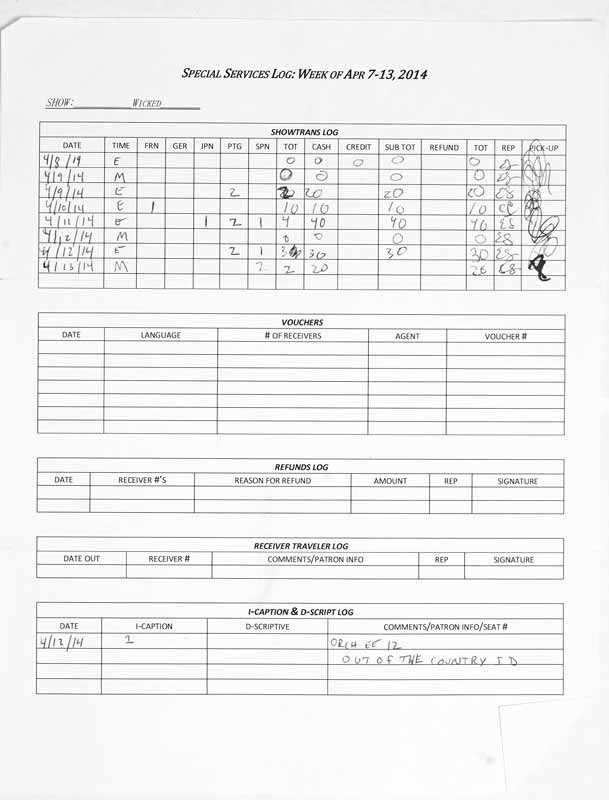 SPECIAL SERVICES LOG: WEEK OF APR 7-13, 2014
SHOW: WICKED
SHOWTRANS LOG
DATE TIME FRN GER JPN PTG SPN TOT CASH CREDIT SUB TOT REFUND TOT REP PICK-UP
4/8/14 E 0 0 0 0 0 ES
4/9/14 M 0 0 0 0 ES
4/9/14 E 2 2 20 20 20 ES
4/10/14 E 1 10 10 10 10
4/11/14 E 1 2 1 4 40 40 40 ES
4/12/14 M 0 0 0 0 ES
4/12/14 E 2 1 3 30 30 30 ES
4/13/14 M 2 2 20 20 ES
VOUCHERS
DATE LANGUAGE # OF RECEIVERS AGENT VOUCHER #
REFUNDS LOG
DATE RECEIVER #'S REASON FOR REFUND AMOUNT REP SIGNATURE
RECEIVER TRAVELER LOG
DATE OUT RECEIVER # COMMENTS/PATRON INFO REP SIGNATURE
I-CAPTION & D-SCRIPT LOG
DATE I-CAPTION D-SCRIPTIVE COMMENTS/PATRON INFO/SEAT #
4/12/14 1 ORCH EE 12
OUT OF THE COUNTRY ID